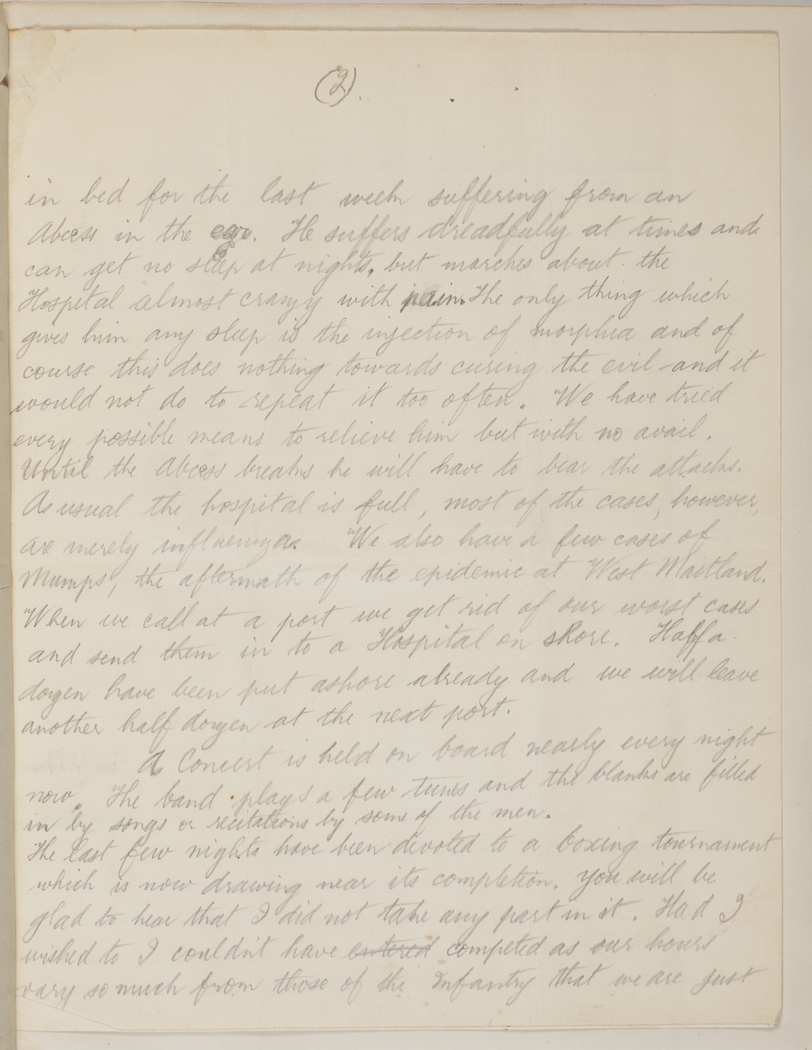 (2).
in bed for the last week suffering from an
Abcess in the ear. He suffers dreadfully at times and
can get no sleep at nights, but marches about the
Hospital almost crazy with pain. The only thing which
gives him any sleep is the injection of morphia and of
course this does nothing towards curing the evil and it
would not do to repeat it too often. We have tried
every possible means to relieve him but with no avail.
Until the Abcess breaks he will have to bear the attacks.
As usual the hospital is full, most of the cases, however,
are merely influenza. We also have a few cases of
Mumps, the aftermath of the epidemic at West Maitland.
When we call at a port we get rid of our worst cases
and send them in to a Hospital on shore. Half a
dozen have been put ashore already and we will leave
another half dozen at the next port.
A Concert is held on board nearly every night
now. The band plays a few tunes and the blanks are filled
in by songs or recitations by some of the men.
The last few nights have been devoted to a boxing tournament
which is now drawing near its completion. You will be
glad to hear that I did not take any part in it. Had I
wished to I couldn't have entered competed as our hours
vary so much from those of the Infantry that we are just